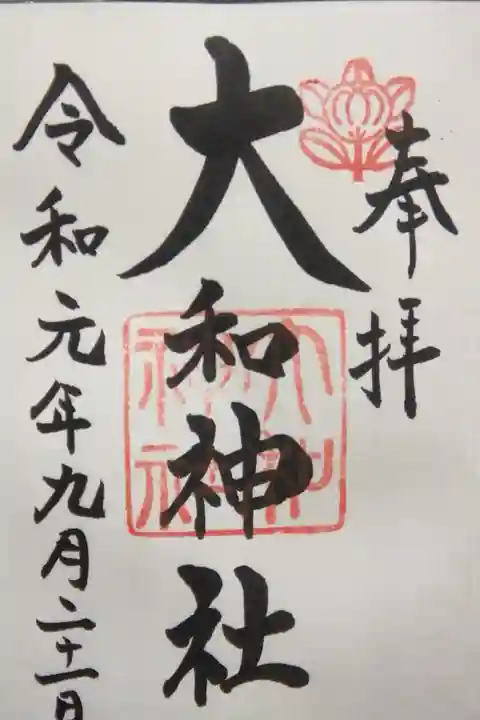 奉拝
大和神社
令和元年九月二十一日
大和神社